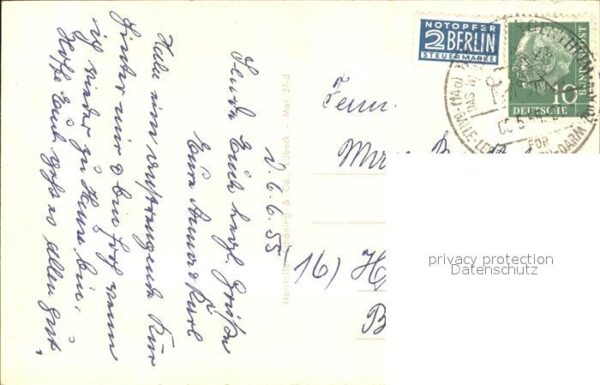 NOTOPFER
2 BERLIN
STEUERMARKE
10
DEUTSCHE
BUNDESPOST
v. 6.6.55
Sende Euch herzl. Grüße
Eure Anna & Karl
Habe eine anstrengende Kur
hinter mir & bin froh wenn
ich wieder zu Hause bin.
Hoffe Euch geht es allen gut.
Fam.
(16) H
B
privacy protection
Datenschutz